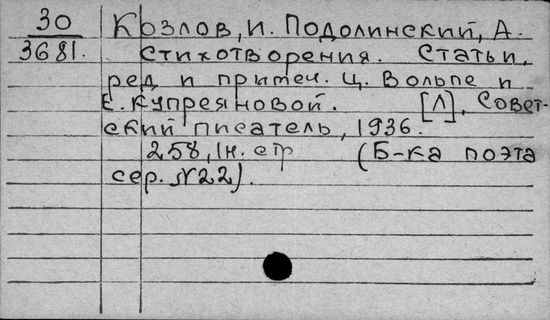 30
3681.
Козлов, И. Подолинский, А.
Стихотворения. Статьи,
ред и примеч. Ц. Вольпе и
Е. Купреяновой. [Л], Совет-
ский писатель, 1936.
258, 1н. стр (Б-ка поэта
сер. №22).